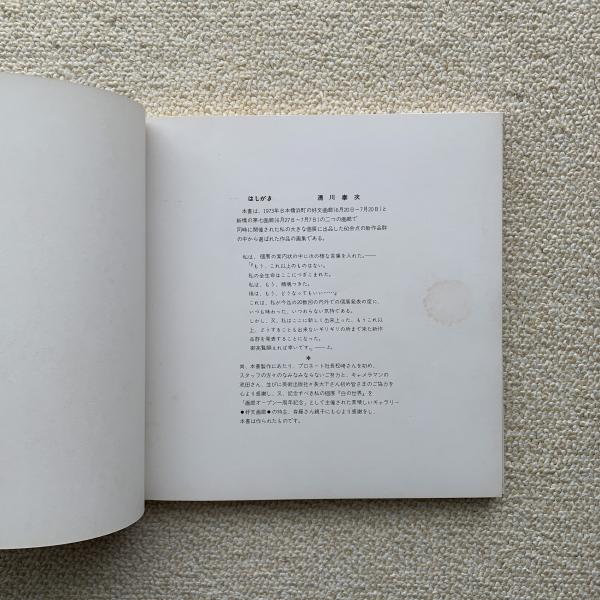 はしがき 速川泰次
本書は、1973年日本橋浜町の好文画廊(6月20日〜7月20日)と
新橋の第七画廊(6月27日〜7月7日)の二つの画廊で
同時に開催された私の大きな個展に出品した60余点の新作品群
の中から選ばれた作品の画集である。
私は、個展の案内状の中に次の様な言葉を入れた。――
「『もう、これ以上のものはない。
私の全生命はここにつぎこまれた。
私は、もう、精魂つきた。
後は、もう、どうなってもいい……』
これは、私が今迄の20数回の内外での個展発表の度に、
いつも味わった、いつわらない気持である。
しかし、又、私はここに新しく出来上った、もうこれ以
上、どうすることも出来ないギリギリの所まで来た新作
品群を発表することになった。
御高覧賜えれば幸いです」――と。
＊
尚、本書製作にあたり、プロネート社長松崎さんを初め、
スタッフの方々のなみなみならないご努力と、キャメラマンの
沢田さん、並びに美術出版社々長大下さん初め皆さまのご協力を
心より感謝し、又、記念すべき私の個展『白の世界』を
「画廊オープン一周年記念」として主催された素晴しいギャラリー
●好文画廊●の特志、斉藤さん親子にも心より感謝をし、
本書は作られたものです。